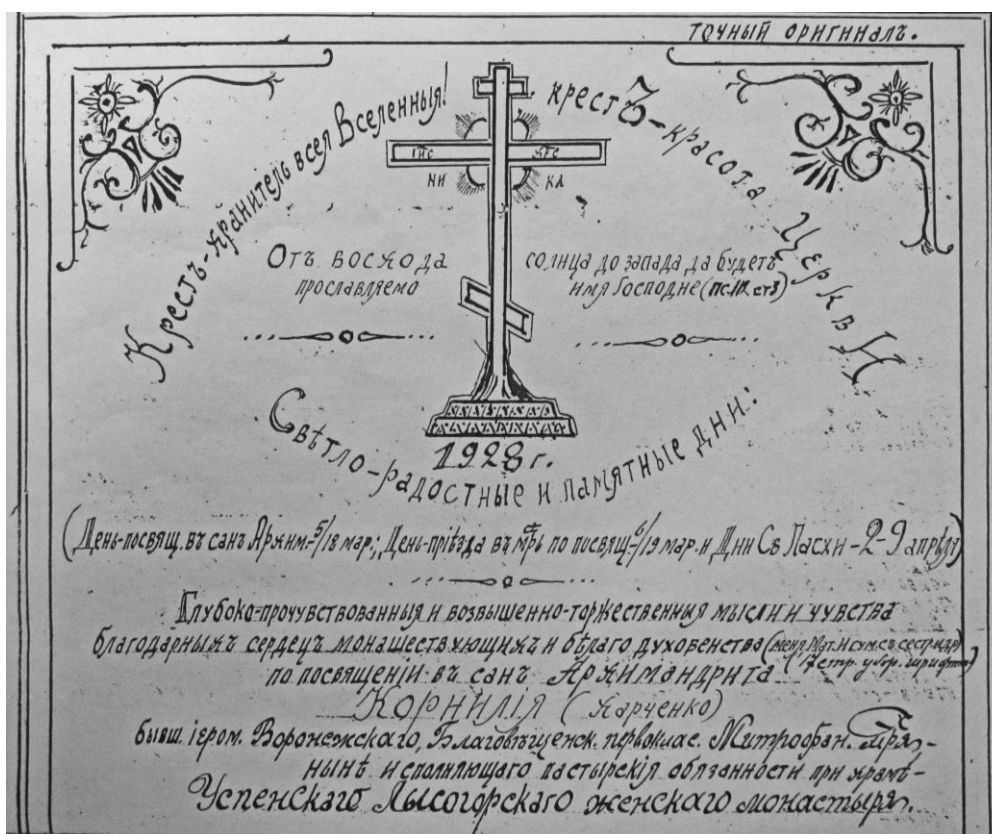 точный оригиналъ.
Крестъ-хранитель всея Вселенныя!
крестЪ-красота Церкви
ІИС ХРС
НИ КА
Отъ восхода солнца до запада да будетъ
прославляемо имя Господне (пс. ст3)
1928 г.
Свѣтло-радостные и памятные дни:
(День-посвящ. въ сан Архим.-5/18 мар.; День-пріѣзда въ мрь по посвящ.-6/19 мар. и Дни Св Пасхи-2-9 апрѣля)
Глубоко-прочувствованныя и возвышенно-торжественныя мысли и чувства
благодарныхъ сердецъ монашествующихъ и бѣлаго духовенства (съ сестрами)
7 стр. убор. шрифта
по посвященіи въ санъ Архимандрита
Корнилія (Харченко)
бывш. іером. Воронежскаго, Благовѣщенск. первоклас. Митрофан. мря,-
нынѣ исполняющаго пастырскія обязанности при храмѣ-
Успенскаго Лысогорскаго женскаго монастыря.